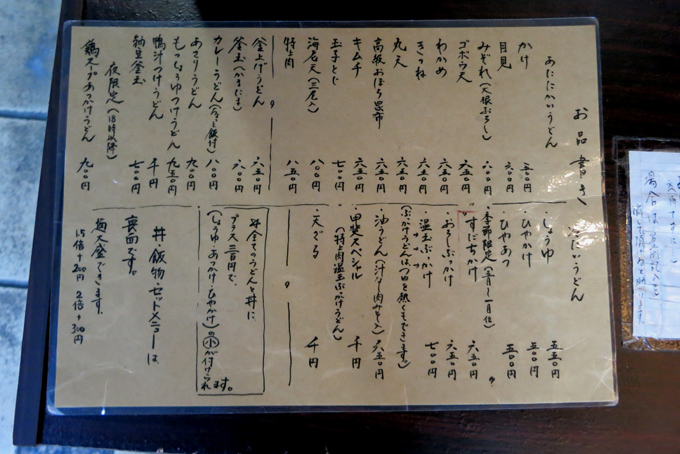 お品書き
あたたかいうどん
かけ 五〇〇円
月見 六〇〇円
みぞれ(大根おろし) 六〇〇円
ゴボウ天 六五〇円
わかめ 六五〇円
きつね 六五〇円
丸天 六五〇円
高級おぼろ昆布 六五〇円
キムチ 六五〇円
玉子とじ 七〇〇円
海老天(三尾入) 八〇〇円
特上肉 八五〇円
釜上げうどん 六五〇円
釜玉(かまたま) 六〇〇円
カレーうどん 八〇〇円
あさりうどん 九〇〇円
もつしょうゆつけうどん 九五〇円
鴨汁つけうどん 千円
納豆釜玉 七〇〇円
夜限定(18時以降)
鶏スープあつかけうどん 九〇〇円
冷たいうどん
・しょうゆ 五五〇円
・ひやかけ 五〇〇円
・ひやあつ 五〇〇円
・季節限定
・すだちかけ 六五〇円
・おろしぶっかけ 六五〇円
・温玉ぶっかけ 七〇〇円
(ぶっかけうどんはつゆを熱くもできます)
・油うどん(汁なし肉みそ入) 六五〇円
・甲斐スペシャル 千円
(特上肉温玉ぶっかけうどん)
・天ざる 千円
全てのうどんと丼に、
プラス三百円で、
(しょうゆ・あつかけ・ひやかけ)の小が付けられます。
丼・飯物・セットメニューは
裏面です。
麺大盛できます。
1.5倍+200円 2倍+300円